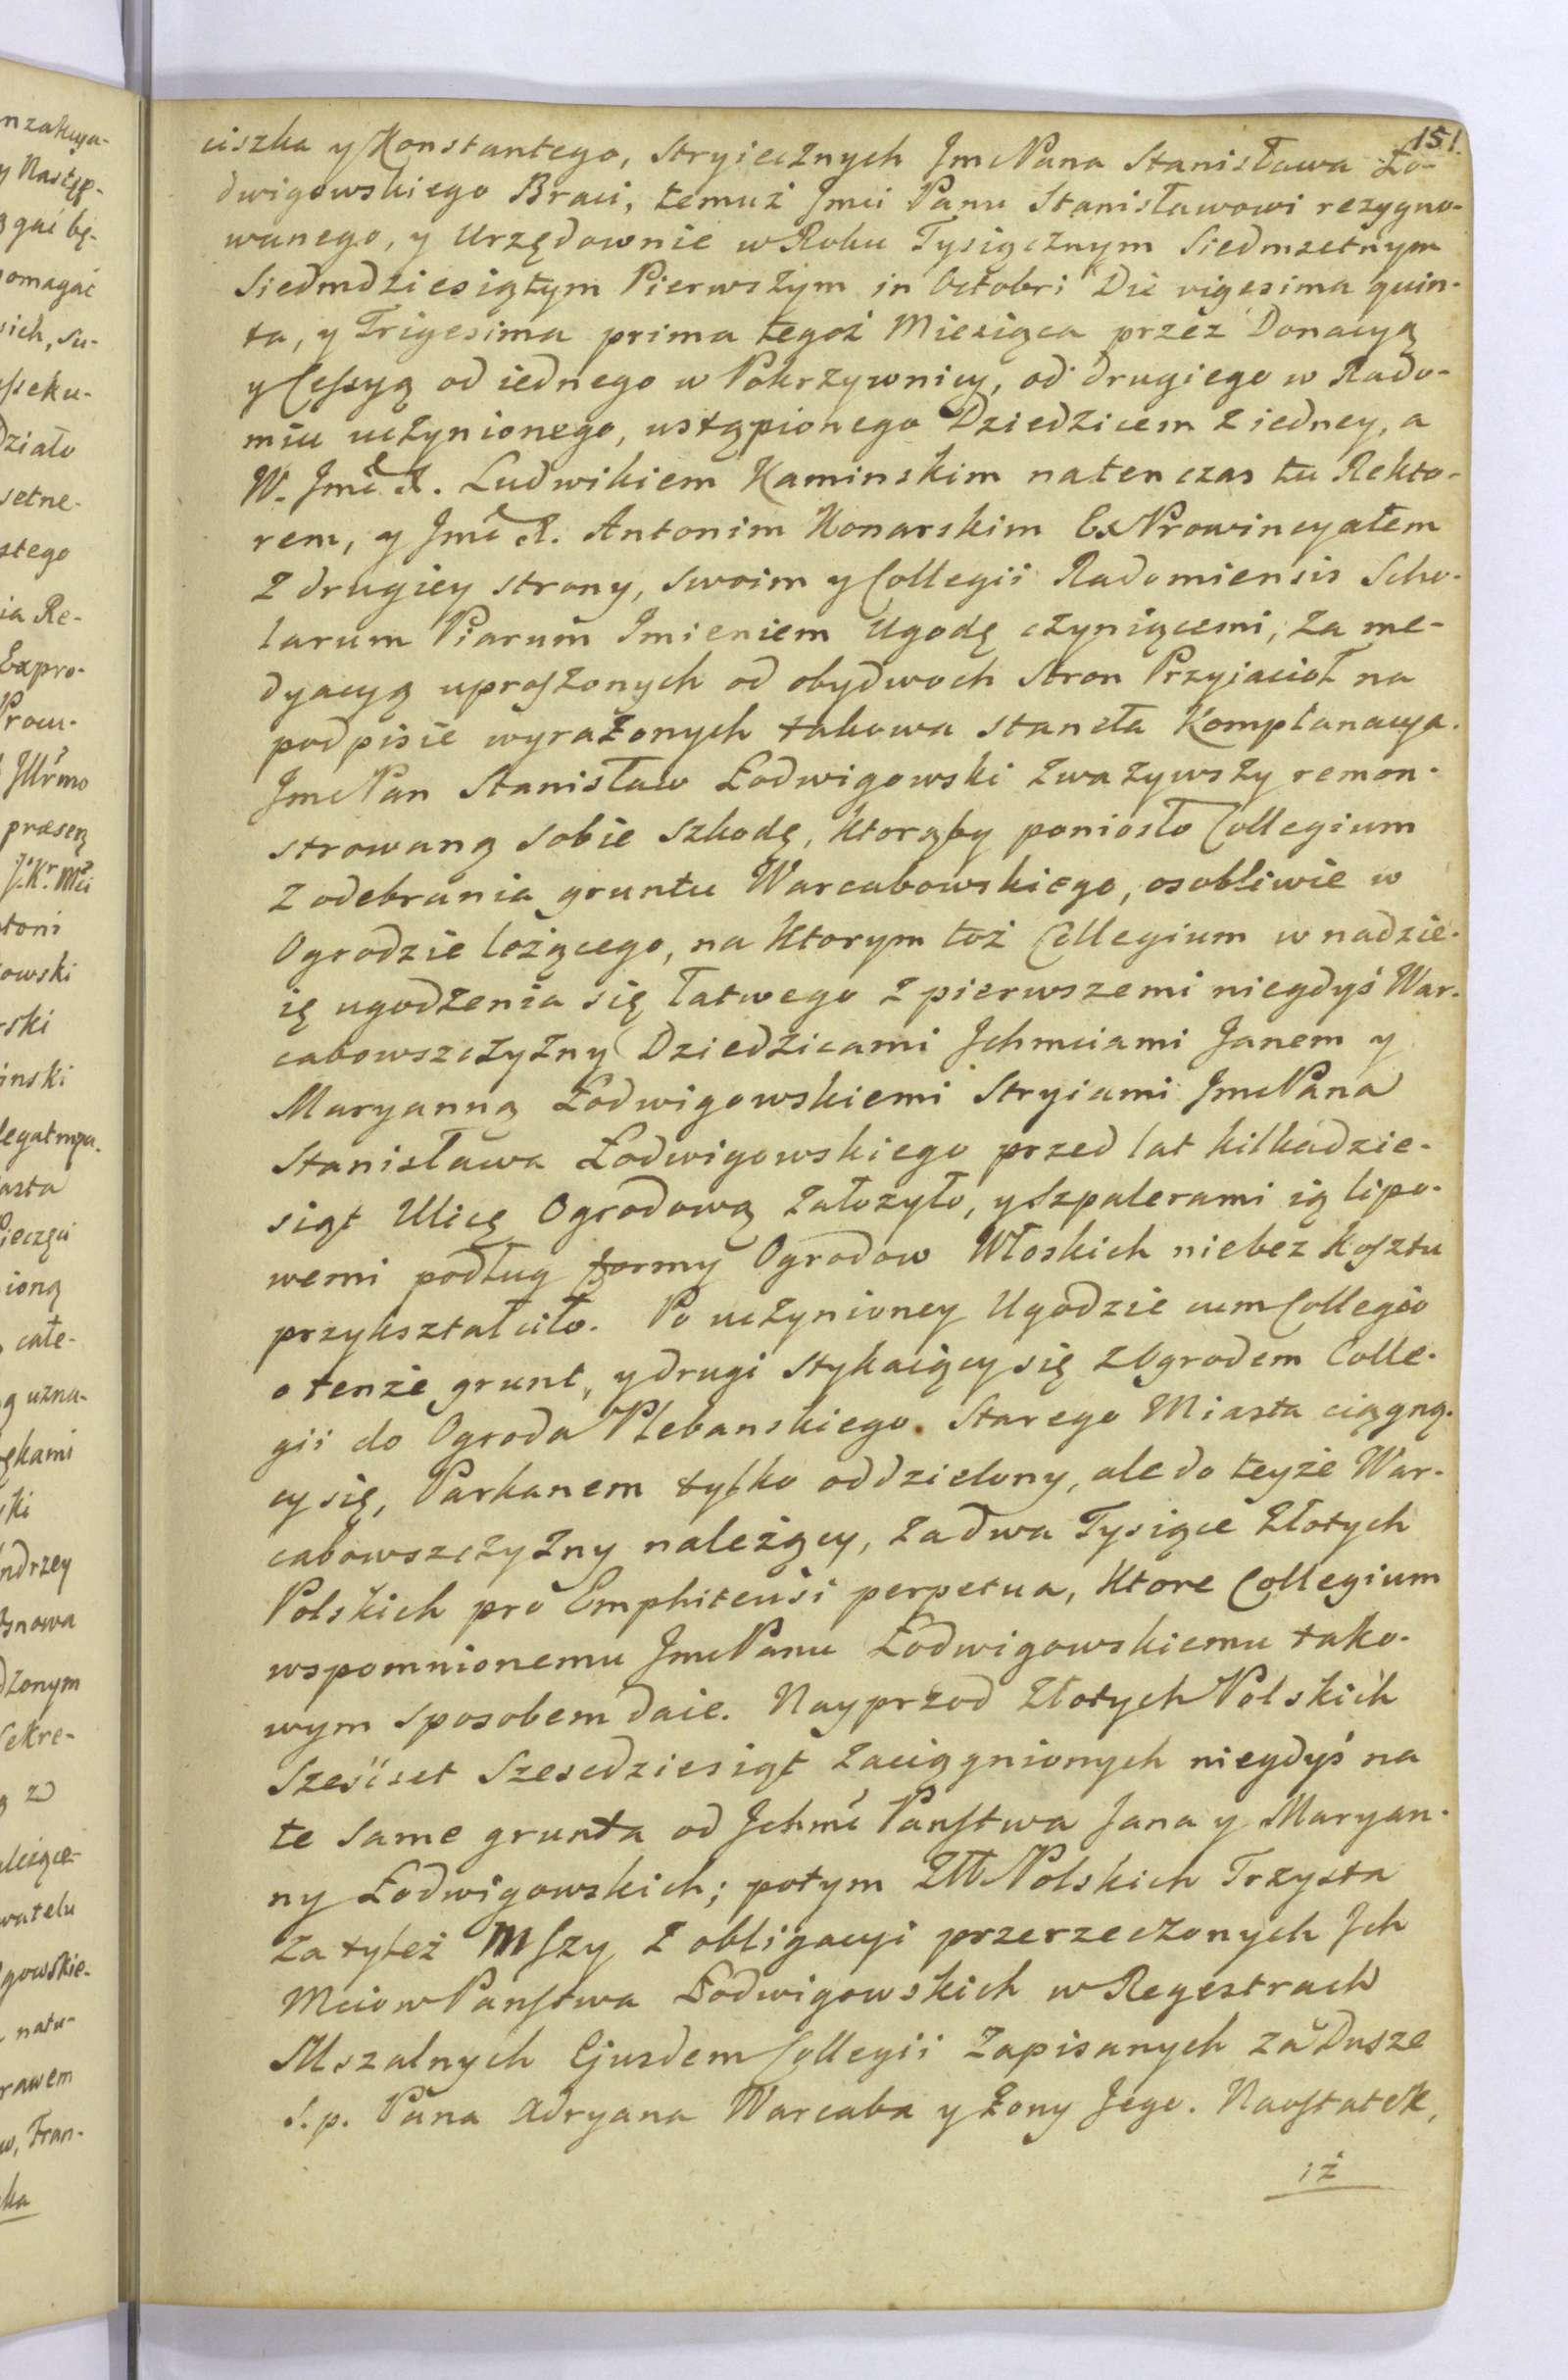 151.
ciszka y Konstantego, Stryiecznych Jmc Pana Stanisława Ło-
dwigowskiego Braci, temuż Jmci Panu Stanisławowi rezygno-
wanego, y Urzędownie w Roku Tysiącznym Siedmsetnym
Siedmdziesiątym Pierwszym in Octobri Die vigesima quin-
ta, y Trigesima prima tegoż Miesiąca przez Donacyą
y Cessyą od iednego w Pokrzywnicy, od drugiego w Rado-
miu uczynionego, ustąpionego Dziedzicem z iedney, a
W. Jmć X. Ludwikiem Kaminskim natenczas tu Rekto-
rem, y Jmć X. Antonim Konarskim ExProwincyałem
z drugiey strony, swoim y Collegii Radomiensis Scho-
larum Piarum Imieniem Ugodę czyniącemi, za me-
dyacyą uproszonych od obydwoch Stron Przyiacioł na
podpisie wyrażonych takowa staneła Komplanacya.
Jmc Pan Stanisław Łodwigowski zważywszy remon-
strowaną sobie szkodę, ktorąby poniosło Collegium
z odebrania gruntu Warcabowskiego, osobliwie w
Ogrodzie leżącego, na ktorym toż Collegium w nadzie-
ię ugodzenia się łatwego z pierwszemi niegdyś War-
cabowszczyzny Dziedzicami Jchmciami Janem y
Maryanną Łodwigowskiemi Stryiami Jmc Pana
Stanisława Łodwigowskiego przed lat kilkadzie-
siąt Ulicę Ogrodową założyło, y Szpalerami ią lipo-
wemi podług formy Ogrodow Włoskich niebez kosztu
przykształciło. Po uczynioney Ugodzie cum Collegio
o tenże grunt, y drugi stykaiący się z Ogrodem Colle-
gii do Ogroda Plebanskiego Starego Miasta ciągną-
cy się, Parkanem tylko oddzielony, ale do teyże War-
cabowszczyzny należący, za dwa Tysiące Złotych
Polskich pro Emphiteusi perpetua, ktore Collegium
wspomnionemu Jmc Panu Łodwigowskiemu tako-
wym sposobem daie. Nayprzod Złotych Polskich
Sześćset Szescdziesiąt zaciągnionych niegdyś na
te same grunta od Jchmć Panstwa Jana y Maryan-
ny Łodwigowskich; potym Złł Polskich Trzysta
za tyleż Mszy z obligacyi przerzeczonych Jch
Mciow Panstwa Łodwigowskich w Regestrach
Mszalnych Ejusdem Collegii zapisanych za Dusze
S. p. Pana Adryana Warcaba y Żony Jego. Naostatek,
iż